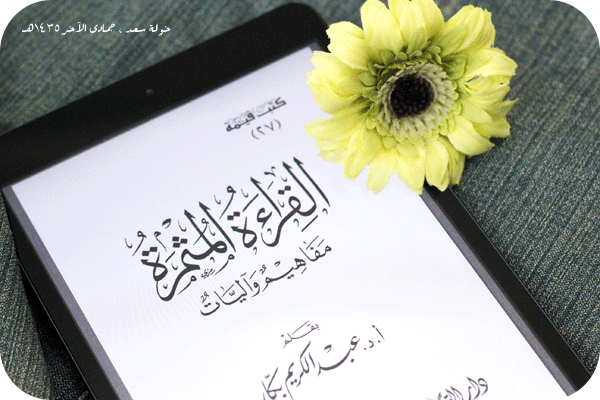 خولة سعد ، جمادى الآخر ١٤٣٥هـ
كتب قيمة
(٢٧)
القِرَاءَةُ المُثْمِرَةُ
مَفَاهِيمُ وَآلِيَّاتٌ
بقلم
أ.د. عبد الكريم بكار
دار